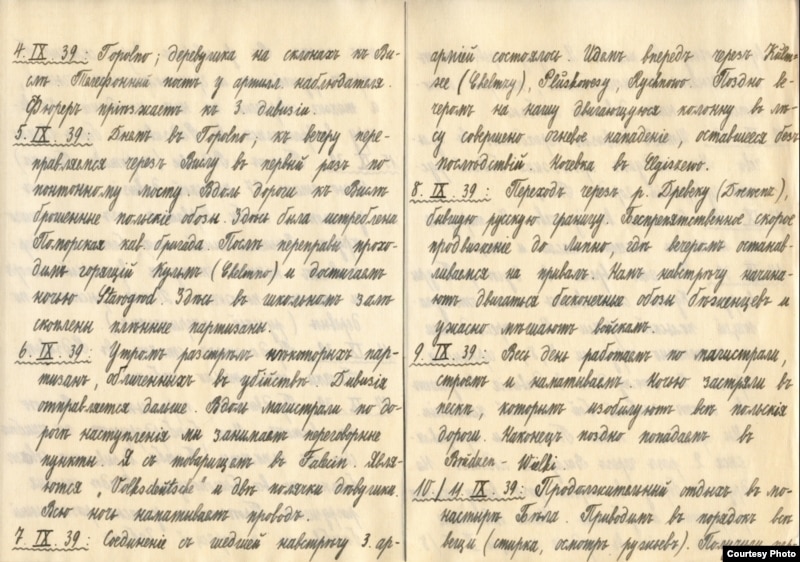 4. IX. 39: Торовно; деревушка на склонахъ къ Ви-
слѣ. Телефонный постъ у артил. наблюдателя.
Фюреръ пріѣзжаетъ къ 3. дивизіи.
5. IX. 39: Днемъ въ Торовно, къ вечеру пере-
правляемся черезъ Вислу въ первый разъ по
понтонному мосту. Вдоль дороги къ Вислѣ
брошенные польскіе обозы. Здѣсь была истреблена
Поморская кав. бригада. Послѣ переправы прохо-
димъ горящій Кульмъ (Chelmno) и достигаемъ
ночью Starogrod. Здѣсь въ школьномъ залѣ
скоплены плѣнные партизаны.
6. IX. 39: Утромъ разстрѣлъ нѣкоторыхъ пар-
тизанъ, обличенныхъ въ убійствѣ. Дивизія
отправляется дальше. Вдоль магистрали по до-
рогѣ наступленія мы занимаемъ переговорные
пункты. Я съ товарищемъ въ Falecin. Явля-
ются „Volksdeutsche" и двѣ полячки дѣвушки.
Всю ночь наматываемъ проводъ.
7. IX. 39: Соединеніе съ шедшей навстрѣчу 3. ар-
арміей состоялось. Идемъ впередъ черезъ Kulm-
see (Chelmzy), Pluskowesy, Rychnowo. Поздно ве-
черомъ на нашу двигающуюся колонну въ лѣ-
су совершено огневое нападеніе, оставшееся безъ
послѣдствій. Ночевка въ Elgiszewo.
8. IX. 39: Переходъ черезъ р. Древенцу (Drewenz),
бывшую рускую границу. Безпрепятственное скорое
продвиженіе до Липно, гдѣ вечеромъ останав-
ливаемся на привалъ. Намъ навстрѣчу начина-
ютъ двигаться безконечные обозы бѣженцевъ и
ужасно мѣшаютъ войскамъ.
9. IX. 39: Весь день работаемъ по магистрали,
строемъ и наматываемъ. Ночью застряли въ
пескѣ, которымъ изобилуютъ всѣ польскія
дороги. Наконецъ поздно попадаемъ въ
Brudzen - Wielki.
10./11. IX. 39: Продолжительный отдыхъ въ мо-
настырѣ Бѣла. Приводимъ въ порядокъ всѣ
вещи (стирка, осмотръ ружьевъ).
Courtesy Photo